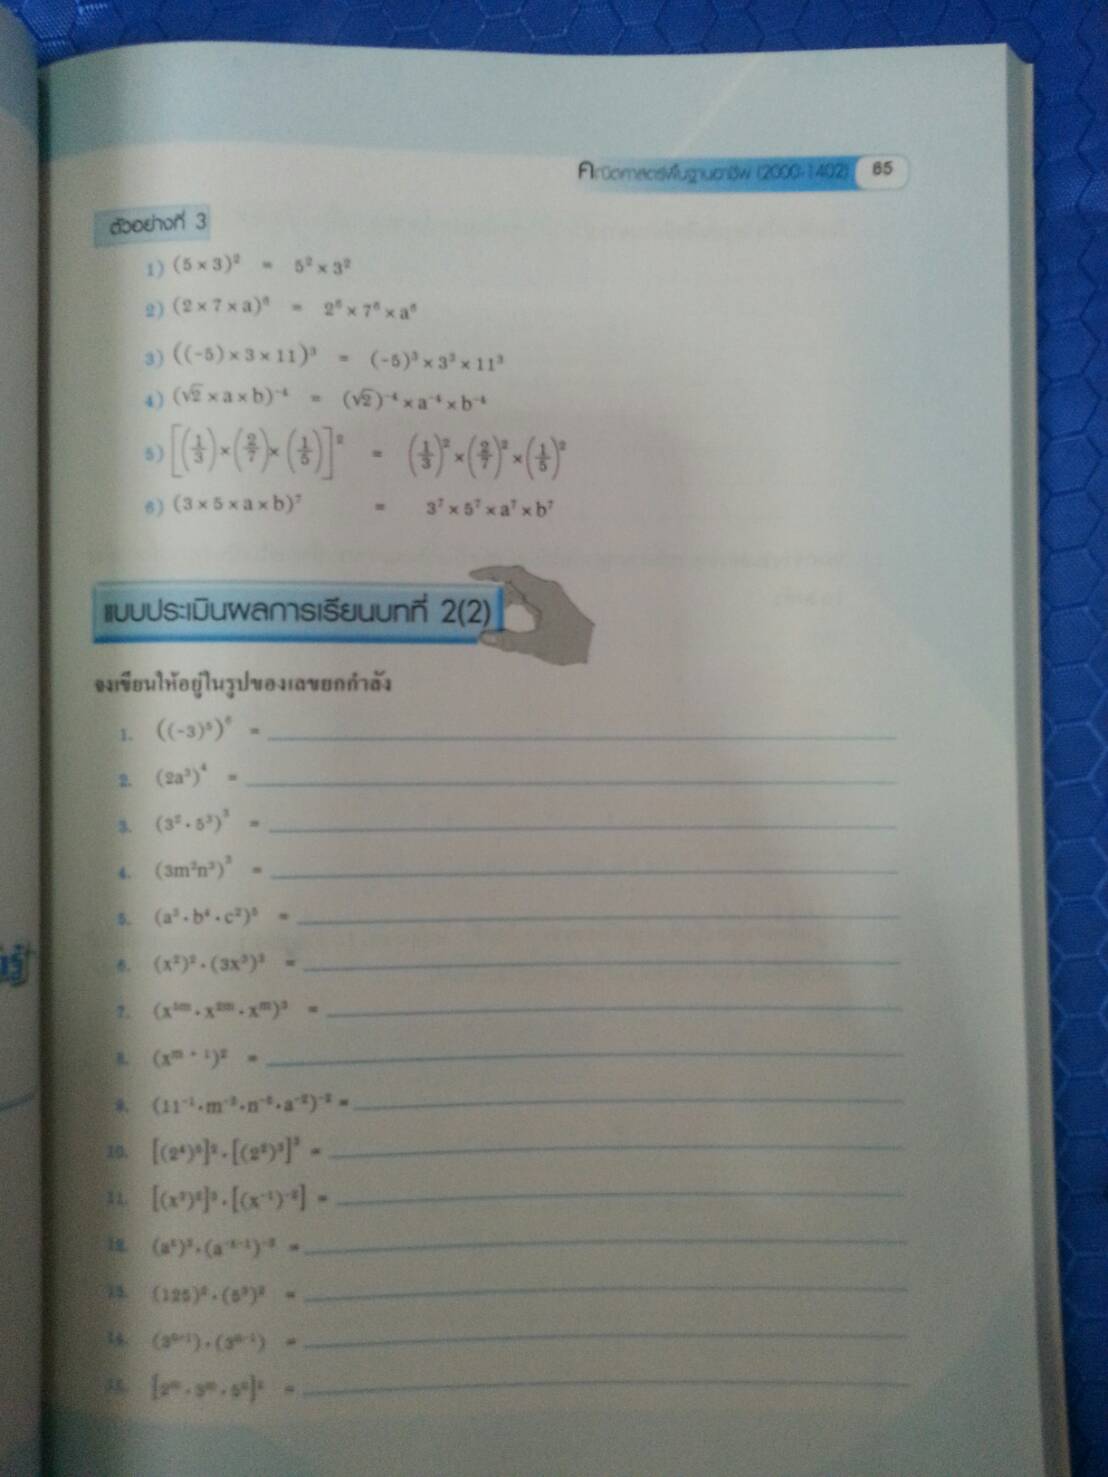 คณิตศาสตร์พื้นฐานอาชีพ (2000-1402) 65
ตัวอย่างที่ 3
1) (5 × 3)² = 5² × 3²
2) (2 × 7 × a)⁶ = 2⁶ × 7⁶ × a⁶
3) ((-5) × 3 × 11)³ = (-5)³ × 3³ × 11³
4) (√2 × a × b)⁻⁴ = (√2)⁻⁴ × a⁻⁴ × b⁻⁴
5) [(1/3) × (2/7) × (1/5)]² = (1/3)² × (2/7)² × (1/5)²
6) (3 × 5 × a × b)⁷ = 3⁷ × 5⁷ × a⁷ × b⁷
แบบประเมินผลการเรียนบทที่ 2(2)
จงเขียนให้อยู่ในรูปของเลขยกกำลัง
1. ((-3)⁵)⁶ =
2. (2a³)⁴ =
3. (3² · 5³)³ =
4. (3m²n³)³ =
5. (a³ · b⁴ · c²)⁵ =
6. (x²)² · (3x³)³ =
7. (x⁵ᵐ · x²ᵐ · xᵐ)³ =
8. (xᵐ⁺¹)² =
9. (11⁻¹ · m⁻³ · n⁻² · a⁻²)⁻² =
10. [(2⁴)⁵]² · [(2²)³]³ =
11. [(x³)²]³ · [(x⁻¹)⁻²] =
12.
13. (125)² · (5³)² =
14. (3ⁿ⁺¹) · (3ⁿ⁻¹) =
15.